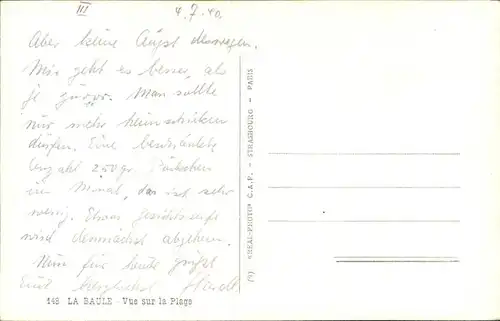 III
4.7.40.
Aber keine Angst deswegen.
Mir geht es besser, als
je zuvor. Man sollte
nur mehr heimschicken
dürfen. Eine beschränkte
Anzahl 250gr. Päckchen
im Monat, das ist sehr
wenig. Etwas Gesichtsseife
wird demnächst abgehen.
Nun für heute grüßt
Euch herzlichst
148 LA BAULE - Vue sur la Plage
(V) "REAL-PHOTO" C.A.P. - STRASBOURG - PARIS